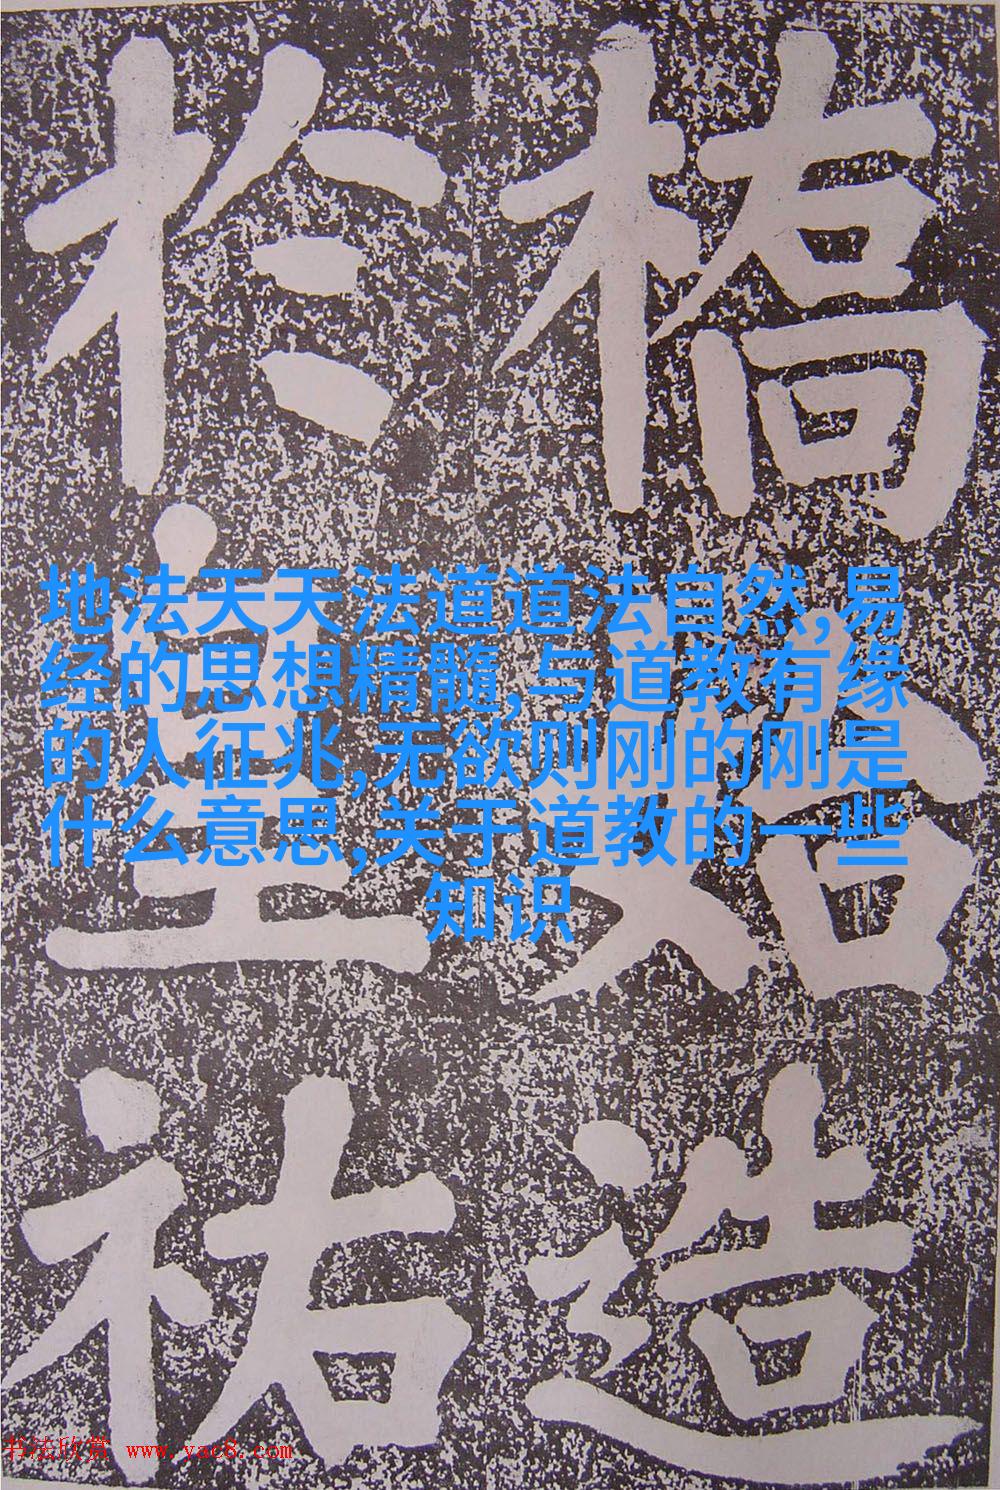 橋始造
於皇祐
地法天天法道道法自然,易
经的思想精髓,与道教有缘
的人征兆,无欲则刚的刚是
什么意思,关于道教的一些
知识
书法欣赏 www.yac8.com